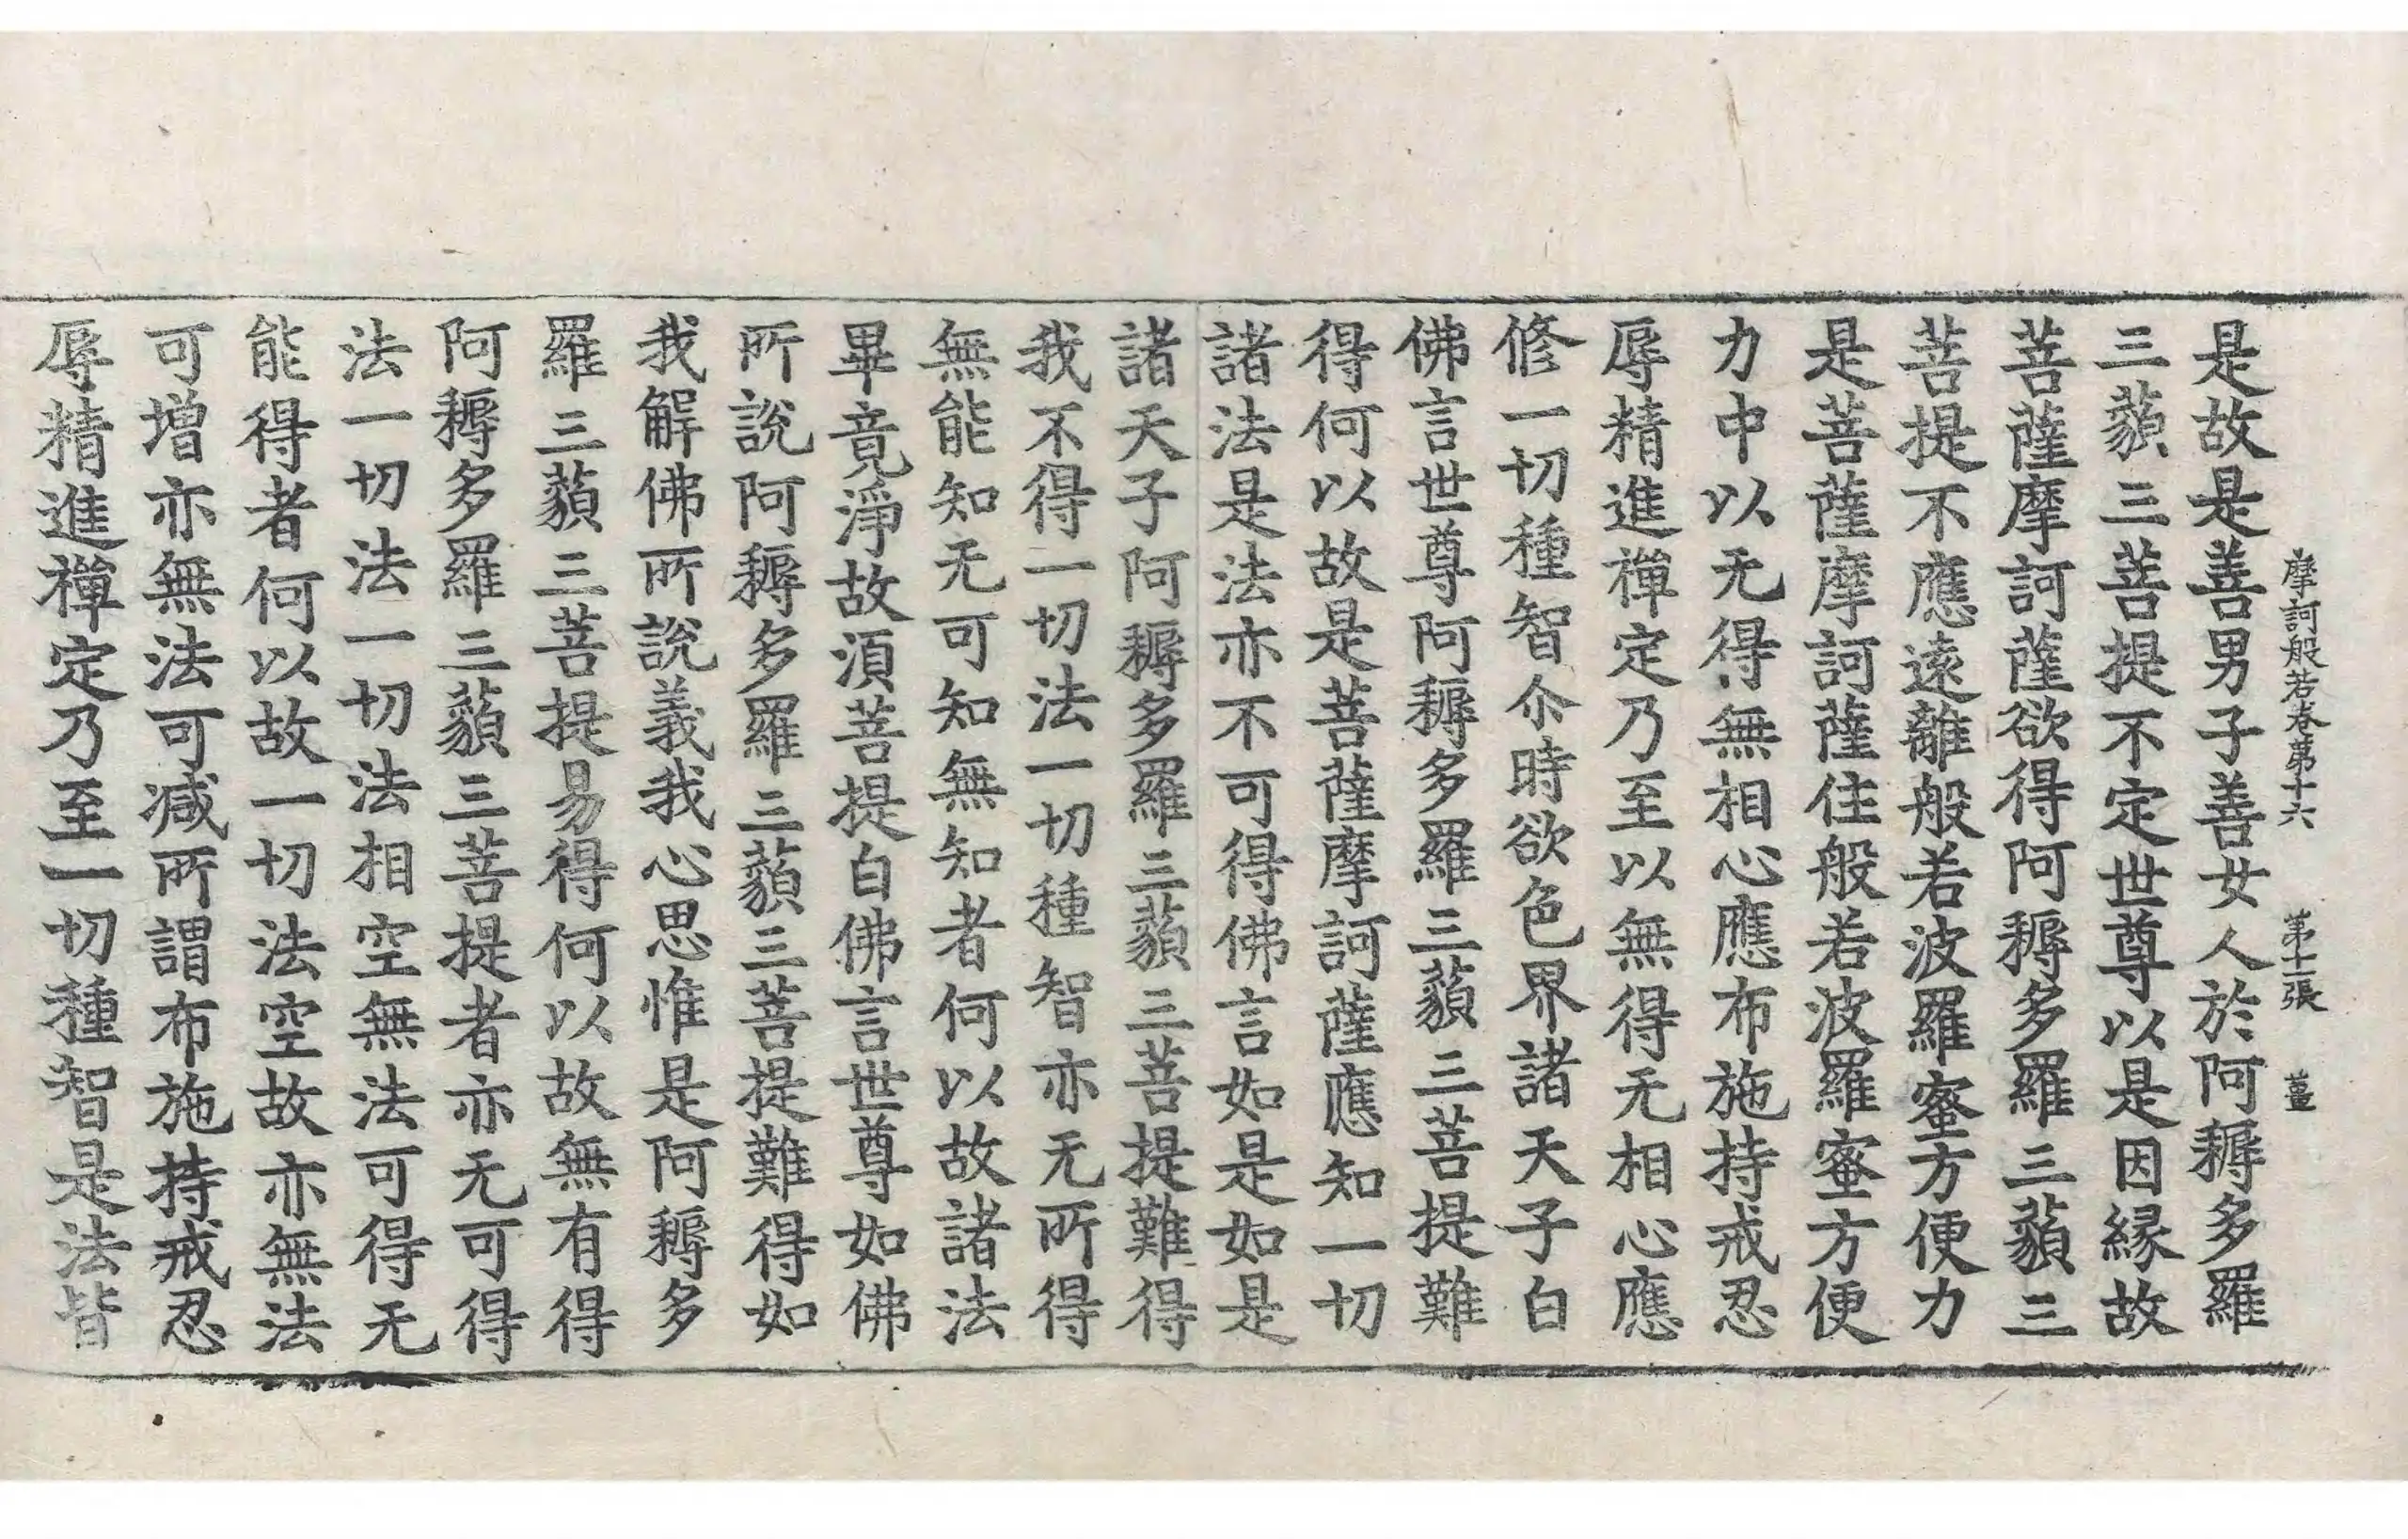 摩訶般若卷第十六 第十二張 薑
是故是善男子善女人於阿耨多羅
三藐三菩提不定世尊以是因緣故
菩薩摩訶薩欲得阿耨多羅三藐三
菩提不應遠離般若波羅蜜方便力
是菩薩摩訶薩住般若波羅蜜方便
力中以无得無相心應布施持戒忍
辱精進禪定乃至以無得无相心應
修一切種智尒時欲色界諸天子白
佛言世尊阿耨多羅三藐三菩提難
得何以故是菩薩摩訶薩應知一切
諸法是法亦不可得佛言如是如是
諸天子阿耨多羅三藐三菩提難得
我不得一切法一切種智亦无所得
無能知无可知無知者何以故諸法
畢竟淨故湏菩提白佛言世尊如佛
所說阿耨多羅三藐三菩提難得如
我解佛所說義我心思惟是阿耨多
羅三藐三菩提易得何以故無有得
阿耨多羅三藐三菩提者亦无可得
法一切法一切法相空無法可得无
能得者何以故一切法空故亦無法
可增亦無法可减所謂布施持戒忍
辱精進禪定乃至一切種智是法皆